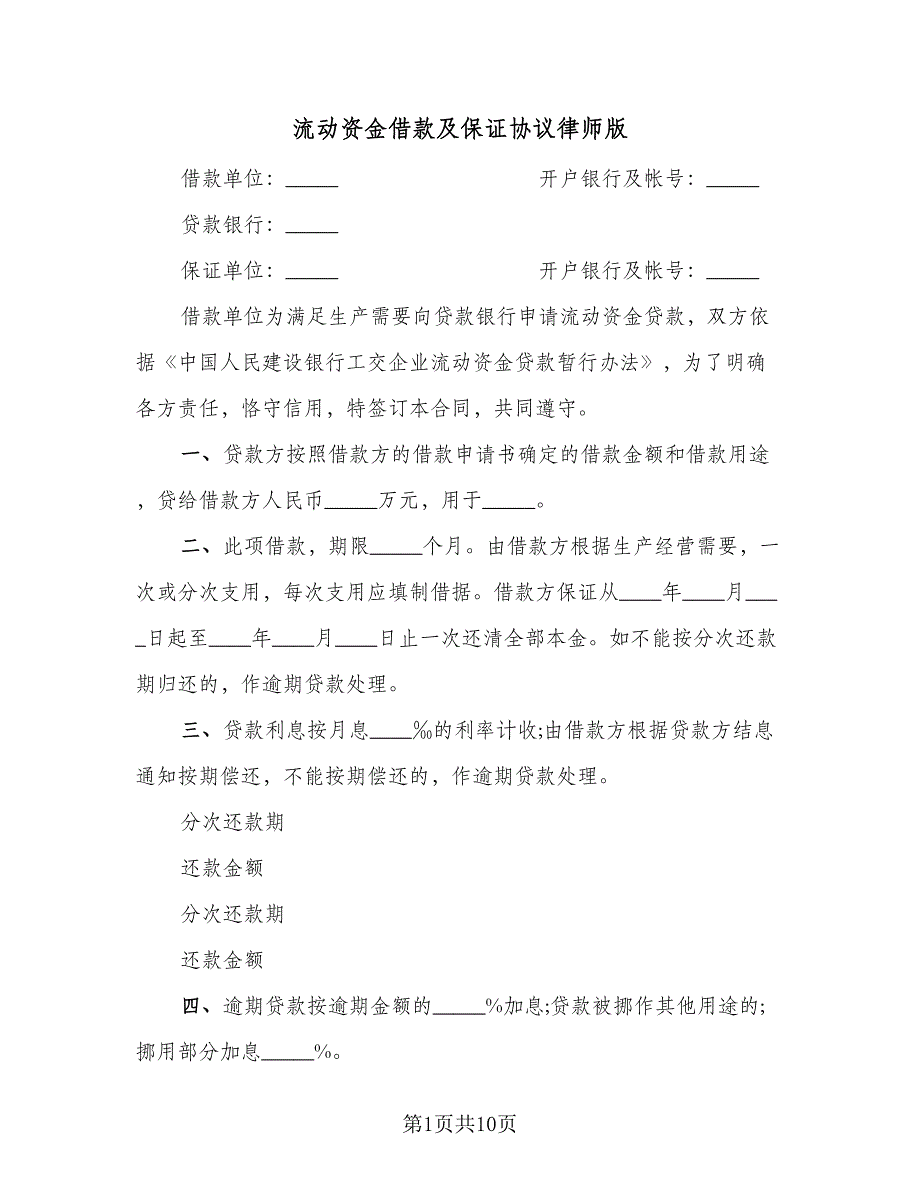 流动资金借款及保证协议律师版
借款单位：_____ 开户银行及帐号：_____
贷款银行：_____
保证单位：_____ 开户银行及帐号：_____
借款单位为满足生产需要向贷款银行申请流动资金贷款，双方依
据《中国人民建设银行工交企业流动资金贷款暂行办法》，为了明确
各方责任，恪守信用，特签订本合同，共同遵守。
一、贷款方按照借款方的借款申请书确定的借款金额和借款用途
，贷给借款方人民币_____万元，用于_____。
二、此项借款，期限_____个月。由借款方根据生产经营需要，一
次或分次支用，每次支用应填制借据。借款方保证从____年____月___
_日起至____年____月____日止一次还清全部本金。如不能按分次还款
期归还的，作逾期贷款处理。
三、贷款利息按月息____‰的利率计收;由借款方根据贷款方结息
通知按期偿还，不能按期偿还的，作逾期贷款处理。
分次还款期
还款金额
分次还款期
还款金额
四、逾期贷款按逾期金额的_____%加息;贷款被挪作其他用途的;
挪用部分加息_____%。
第1页共10页